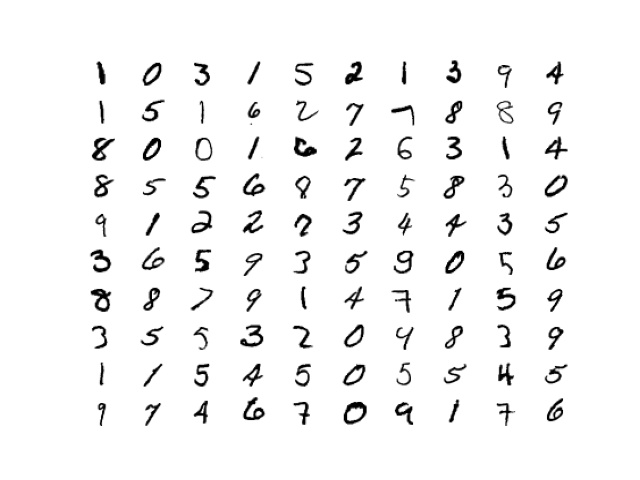 1 0 3 1 5 2 1 3 9 4
1 5 1 6 2 7 7 8 8 9
8 0 0 1 6 2 6 3 1 4
8 5 5 6 8 7 5 8 3 0
9 1 2 2 2 3 4 4 3 5
3 6 5 9 3 5 9 0 5 6
8 8 7 9 1 4 7 1 5 9
3 5 5 3 2 0 4 8 3 9
1 1 5 4 5 0 5 5 4 5
9 7 4 6 7 0 9 1 7 6